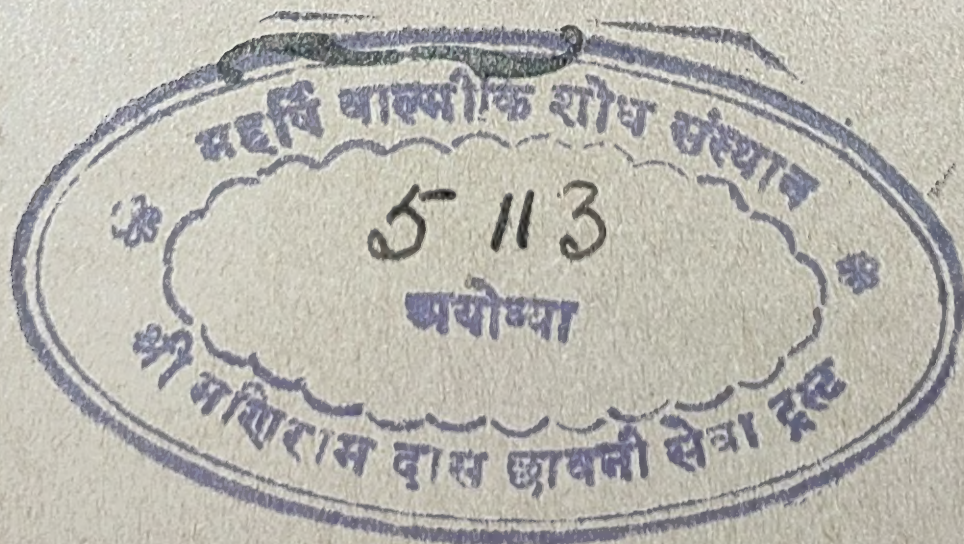 महर्षि वाल्मीकि शोध संस्थान
5113
अयोध्या
श्री मणिराम दास छावनी सेवा ट्रस्ट